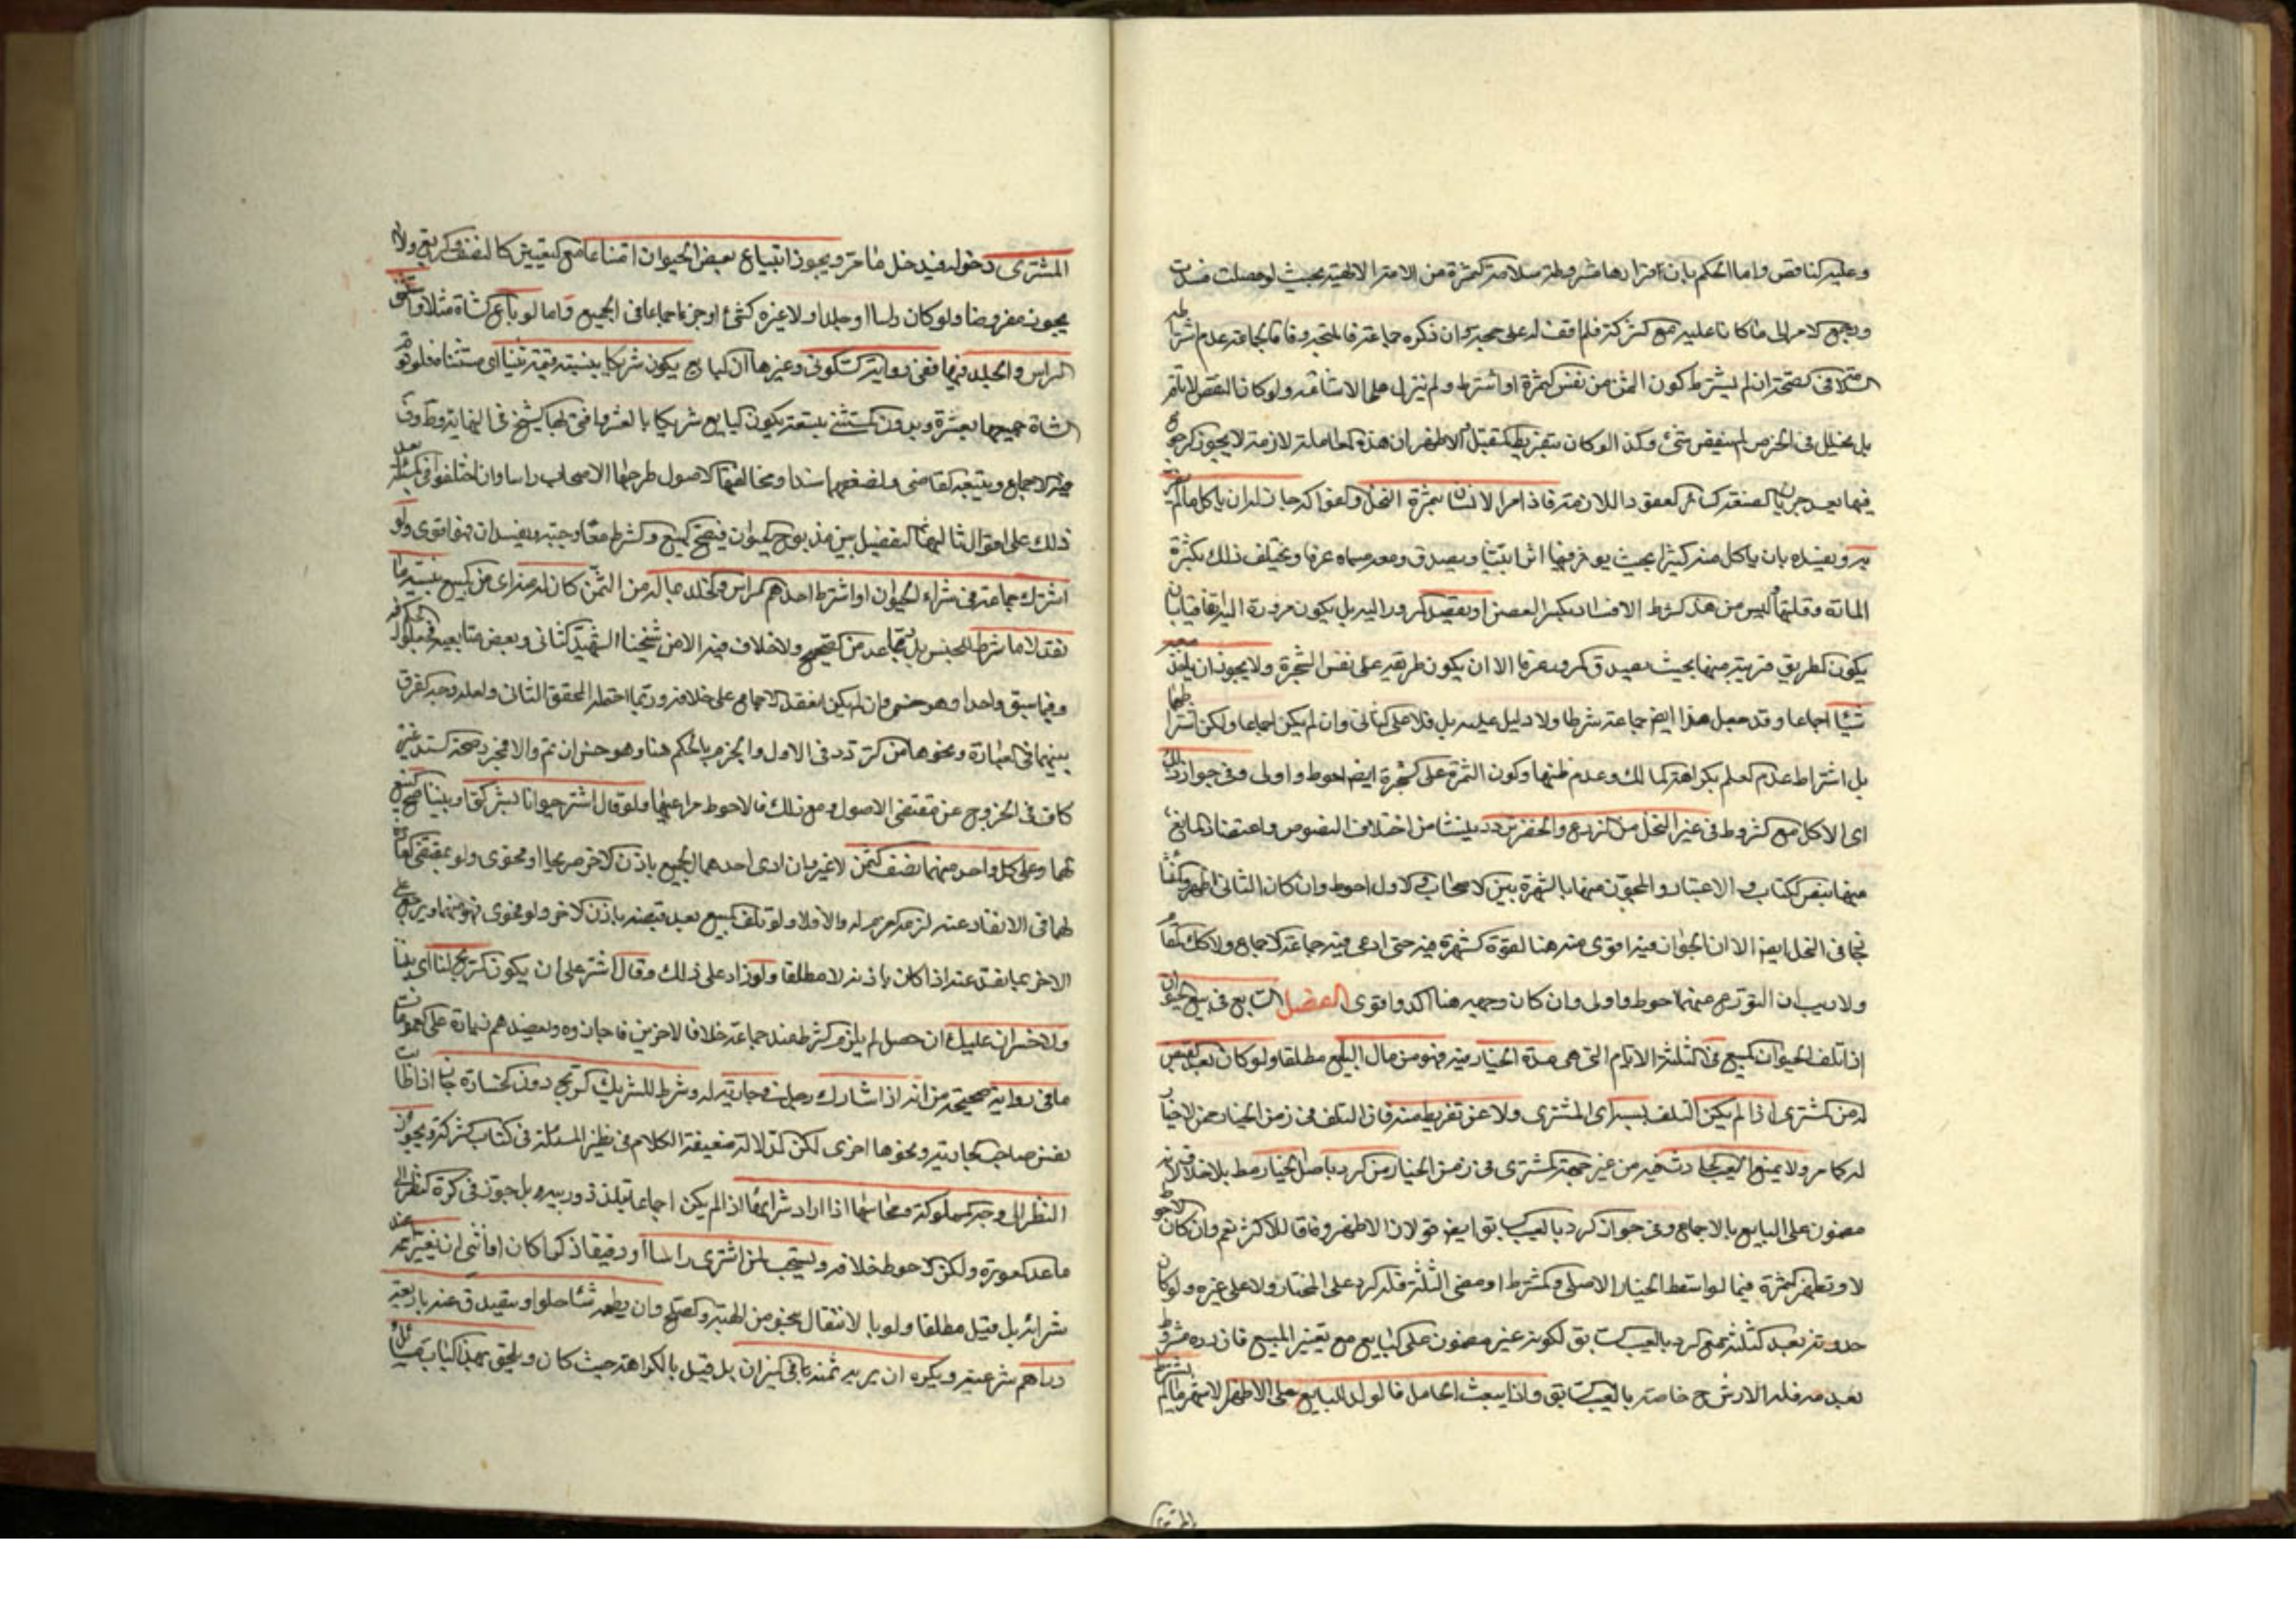 وعليه الناقص واما الحكم بان اقرارها مشروطة بسلامة الثمرة من الافة الالهية بحيث لو حصلت فسدت
ورجع الامر الى ما كانا عليه مع الشركة فلم اقف له على حجة وان ذكره جماعة فالمتجه وفاقا لجماعة عدم اشتراط
السلامة في الصحة ان لم يشترط كون الثمن من نفس الثمرة او اشترط ولم ينزل على الاشاعة ولو كان النقص لا بآفة
بل بخلل في الخرص لم ينقص شيء وكذا لو كان بتفريط المتقبل والاظهر ان هذه المعاملة لازمة لا يجوز الرجوع
فيها بعد جريان الصيغة كسائر العقود اللازمة فاذا مر الانسان بثمرة النخل والفواكه جاز له ان ياكل ما لم
يضر ويفسده بان ياكل منه كثيرا بحيث يؤثر فيها اثرا بينا ويصدق معه مسماه عرفا ويختلف ذلك بكثرة
المارة وقلتهم وليس من هذا الشرط الافساد بكسر الغصن او يقصد المرور اليه بل يكون مروره اليه اتفاقيا بان
يكون الطريق قريبة منها بحيث يصدق المرور عرفا الا ان يكون طريقه على نفس الشجرة ولا يجوز ان ياخذ معه
شيئا اجماعا وقد جعل هذا ايضا جماعة شرطا ولا دليل عليه بل قلا على الثاني وان لم يكن اجماعا ولكن اشتراطها
بل اشتراط عدم العلم بكراهة المالك وعدم ظنها وكون الثمرة على الشجرة ايضا احوط واولى وفي جواز ذلك
اى الاكل مع الشروط في غير النخل من الزرع والخضر تردد ينشا من اختلاف النصوص واعتضاد المانع
منها بنص الكتاب والاعتبار والمجوز منها بالشهرة بين الاصحاب والاول احوط وان كان الثاني اظهر
في النخل ايضا الا ان الجواز فيه اقوى منه هنا لقوة الشهرة فيه حتى ادعى فيه جماعة الاجماع ولا كذلك هنا
ولا ريب ان التورع منهما احوط واولى وان كان وجهه هنا اكد واقوى الفصل السابع في بيع الحيوان
اذا تلف الحيوان المبيع في الثلثة الايام التي هي مدة الخيار فيه فهو من مال البايع مطلقا ولو كان بعد القبض
له من المشترى اذا لم يكن التلف بسبب اى المشترى ولا عن تفريط منه فان التلف في زمن الخيار ممن لا خيار
له كما مر ولا يمنع العيب الحادث فيه من غير جهة المشترى في زمن الخيار من الرد باصل الخيار قط بلا خلاف فيه لانه
مضمون على البايع بالاجماع وفي جواز الرد بالعيب السابق ايضا قولان الاظهر وفاقا للاكثر نعم وان كان الاحوط
لا وتظهر الثمرة فيما لو اسقط الخيار الاصلي والمشترط او مضى الثلثة فله الرد على المختار ولا على غيره ولو كان
حدوثه بعد الثلثة يمنع الرد بالعيب السابق لكونه غير مضمون على البايع مع تغير المبيع فان رده مشروط
بعدمه فله الارش ح خاصة بالعيب السابق واذا بيعت الحامل فالولد للبايع على الاظهر الاشهر ما لم يشترط
المشترى دخوله فيدخل ما مر ويجوز ابتياع بعض الحيوان مشاعا مع التعيين كالنصف والربع ولا
يجوز مفروضا ولو كان راسا او جلدا ولا غيره كشيء او جزء اجماعا في الجميع واما لو باع شاة مثلا واستثنى
الراس والجلد فيها ففي رواية السكوني وغيرها ان البايع يكون شريكا بنسبة قيمة ثنياه اى مستثناه فلو قوم
الشاة جميعها بعشرة وبدون المستثنى بتسعة يكون البايع شريكا بالعشر وافتى بها الشيخ في النهاية وط وف
فيه الاجماع وتبعه القاضي ولضعفها سندا ومخالفتها الاصول طرحها الاصحاب راسا وان اختلفوا في المسئلة بعد
ذلك على اقوال ثالثها التفصيل بين مذبوح الحيوان فيصح البيع والشرط معا وحيه ويفسدان وهو اقوى ولو
اشترك جماعة في شراء الحيوان واشترط احدهم الراس والجلد بماله من الثمن كان له منه اى من المبيع بنسبة ما
نقد لا ما شرط الجنس بل جماعة من الصحيح ولا خلاف فيه الا من شيخنا الشهيد الثاني وبعض متابعيه في ذلك الحكم فيه
وفيما سبق واحدا وهو حسن وان لم يكن انعقد الاجماع على خلافه وربما احتمله المحقق الثاني ولعله وجه الفرق
بينهما في العبارة ونحوها من التردد في الاول والجزم بالحكم هنا وهو حسن ان تم والا فمجرد صحة السند غير
كاف في الخروج عن مقتضى الاصول ومع ذلك فالاحوط مراعاتها ولو قال اشتر حيوانا بشركتي او بيننا صح البيع
لهما وعلى كل واحد منهما نصف الثمن لا غير فان ادى احدهما الجميع باذن الاخر صريحا او فحوى ولو بمقتضى العادة
لهما في الانقاد عنه لزمه الغرم له والا فلا ولو تلف المبيع بعد قبضه باذن الاخر ولو فحوى فهو منهما ويرجع على
الاخر بما نقد عنه اذا كان باذنه لا مطلقا ولو زاد على ذلك وقال اشتر على ان يكون الربح لنا اى بيننا
ولا خسران عليك ان حصل لم يلزم الشرط عند جماعة خلافا لاخرين فاجازوه وبعضهم زيادة على العمومات
ما في رواية صحيحة من انه اذا شارك رجل في جارية له وشرط للشريك الربح دون الخسارة جاز اذا طابت
نفس صاحب الجارية ونحوها اخرى لكن الدلالة ضعيفة الكلام في نظير المسئلة في كتاب الشركة ويجوز
النظر الى وجه المملوكة ومحاسنها اذا اراد شرائها اذا لم يكن اجماعا بتلذذ وريبة بل جوز في كرة النظر الى
ما عدا العورة ولكن الاحوط خلافه ويستحب لمن اشترى راسا او رقيقا ذكرا كان او انثى ان يغير اسمه عند
شرائه بل قيل مطلقا ولو بالانتقال بنحو من الهبة والصلح وان يطعمه شيئا حلوا ويتصدق عنه باربعة
دراهم شرعية ويكره ان يريه ثمنه باقي الميزان بل قيل بالكراهة حيث كان ويلحق بهذا الباب مسائل